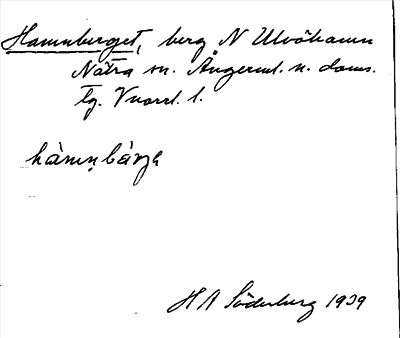 Hamnberget, berg N Ulvöhamn
Nätra sn. Ångerml. n. doms.
tg. V. l.
hàmn̥bàrjə
H A Söderberg 1939